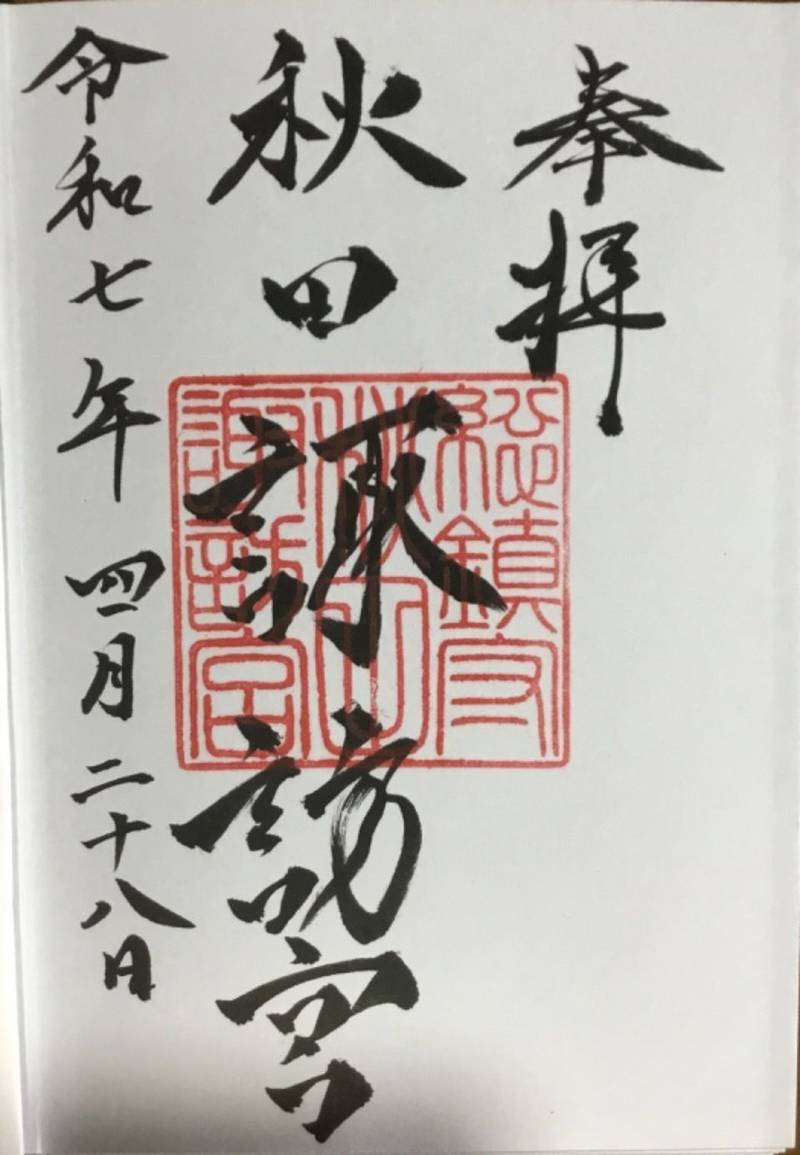 奉拝
秋田諏訪宮
令和七年四月二十八日
総鎮守
秋田
諏訪宮